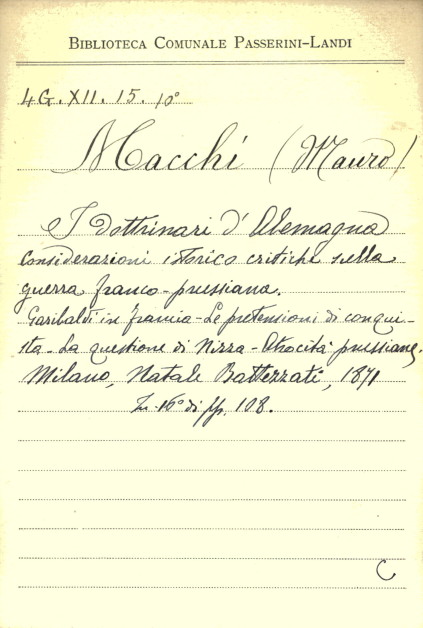 BIBLIOTECA COMUNALE PASSERINI-LANDI
4G.XII.15. 10°
Macchi (Mauro)
I dottrinari d'Alemagna
Considerazioni istorico critiche sulla
guerra franco-prussiana.
Garibaldi in Francia - Le pretensioni di conqui-
sta - La questione di Nizza - Atrocità prussiane.
Milano, Natale Battezzati, 1871
In-16° di pp. 108.
C